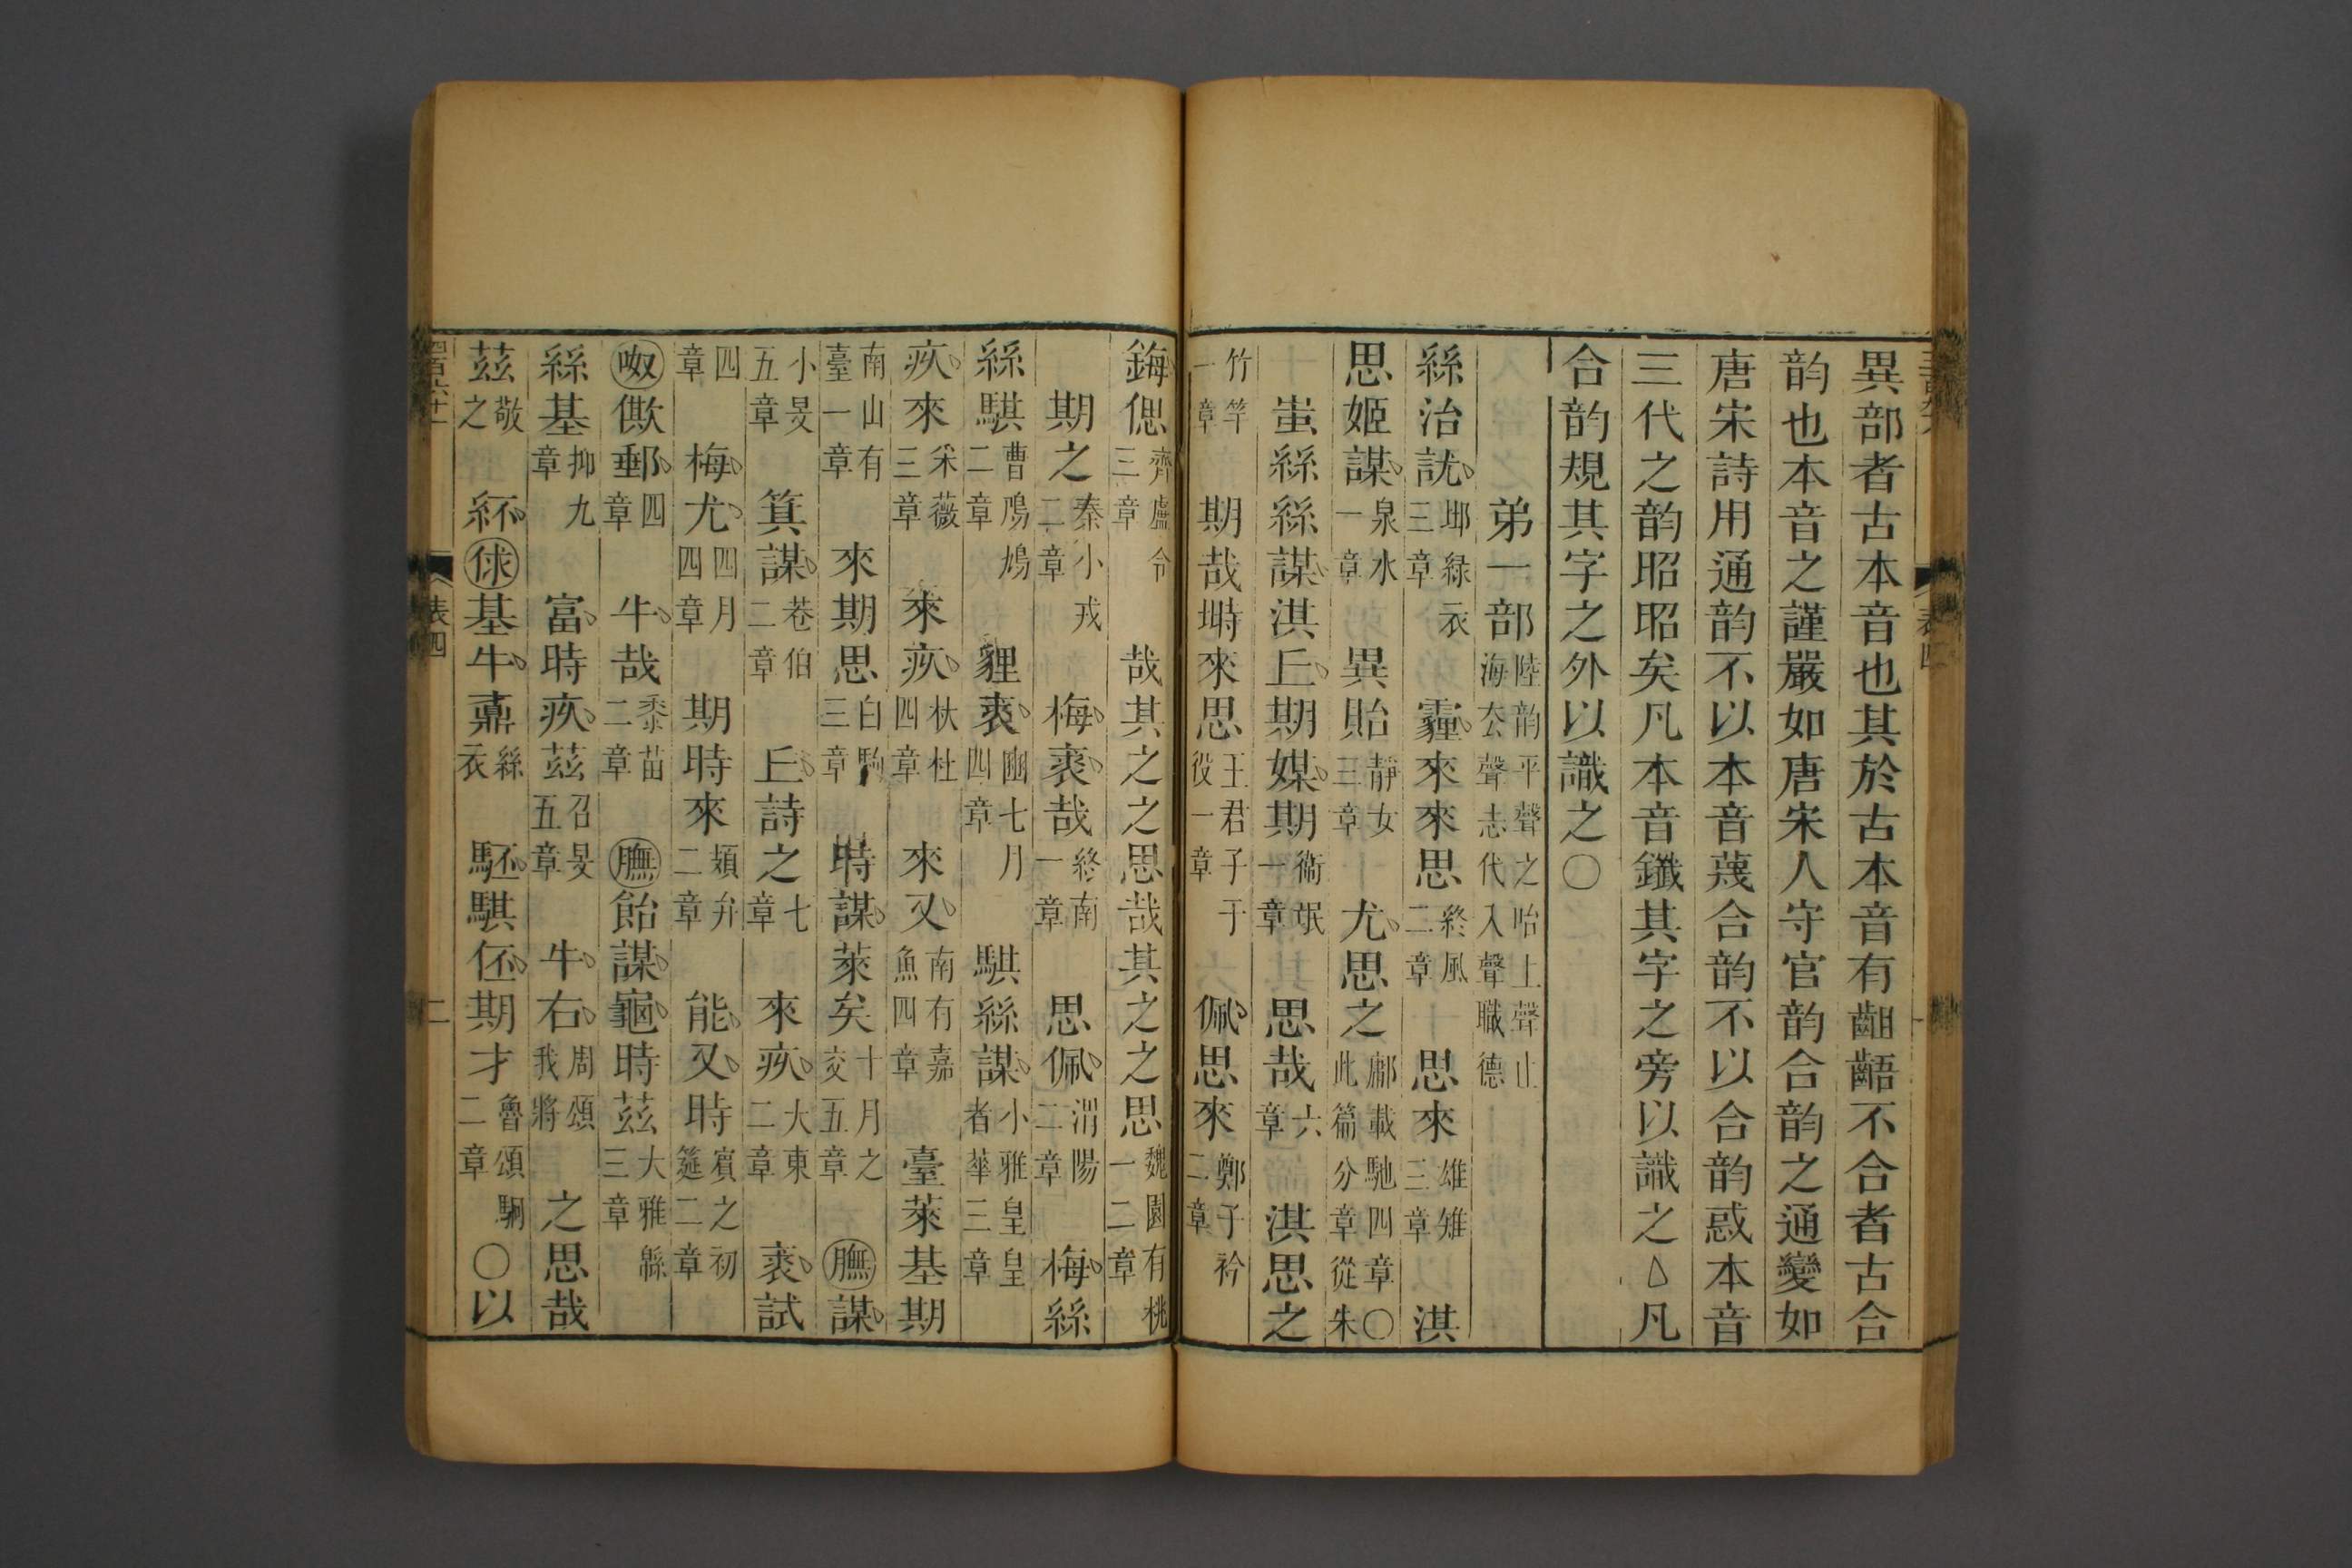 異部者古本音也其於古本音有齟齬不合者古合
韵也本音之謹嚴如唐宋人守官韵合韵之通變如
唐宋詩用通韵不以本音蔑合韵不以合韵惑本音
三代之韵昭昭矣凡本音鐵其字之旁以識之△凡
合韵規其字之外以識之〇
弟一部陸韵平聲之咍上聲止海去聲志代入聲職德
絲治訧邶綠衣三章 霾來來思終風二章 思來雄雉三章 淇
思姬謀泉水一章 異貽靜女三章 尤思之鄘載馳四章〇此篇分章從朱
蚩絲絲謀淇丘期媒期衞氓一章 思哉六章 淇思之
竹竿一章 期哉塒來思王君子于役一章 佩思來鄭子衿二章
鋂偲齊盧令三章 哉其之之思哉其之之思魏園有桃一二章
期之秦小戎二章 梅裘哉終南一章 思佩渭陽二章 梅絲
絲騏曹鳲鳩二章 貍裘豳七月四章 騏絲謀小雅皇皇者華三章
疚來采薇三章 來疚杕杜四章 來又南有嘉魚四章 臺萊基期
南山有臺一章 來期思白駒三章 時謀萊矣十月之交五章 膴謀
小旻五章 箕謀巷伯二章 丘詩之七章 來疚大東二章 裘試
四章 梅尤四月四章 期時來頍弁二章 能又時賓之初筵二章
呶僛郵四章 牛哉黍苗二章 膴飴謀龜時茲大雅緜三章
絲基抑九章 富時疚茲召旻五章 牛右周頌我將 之思哉
茲敬之 紑俅基牛鼒絲衣 駓騏伾期才魯頌駉二章〇以
表四
二